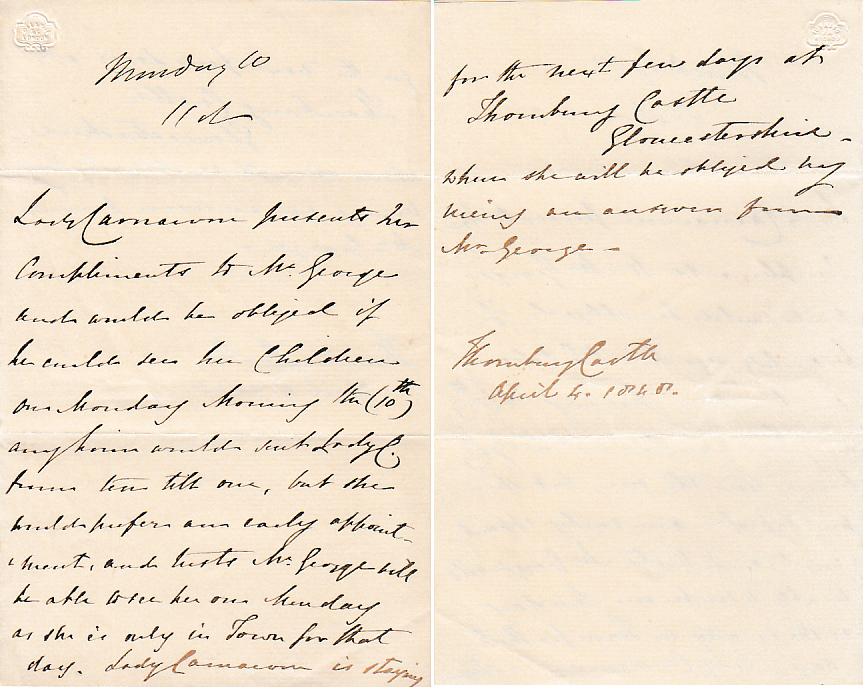 Monday 10
Lady Carnarvon presents her
Compliments to Mr. George
and would be obliged if
he could see her Children
on Monday Morning the (10th)
any hour would suit Lady C.
from ten till one, but she
would prefer an early appoint-
-ment, and trusts Mr. George will
be able to see her on Monday
as she is only in Town for that
day. Lady Carnarvon is staying
for the next few days at
Thornbury Castle
Gloucestershire -
where she will be obliged by
an answer from
Mr. George -
Thornbury Castle
April 4. 1848.